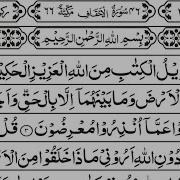 ٤٦ سُوْرَةُ الْاَحْقَافِ مَكِّيَّةٌ ٦٦
بِسْمِ اللّٰهِ الرَّحْمٰنِ الرَّحِيْمِ
يْلُ الْكِتٰبِ مِنَ اللّٰهِ الْعَزِيْزِ الْحَكِيْ
الْاَرْضَ وَمَا بَيْنَهُمَاۤ اِلَّا بِالْحَقِّ وَاَ
وْا عَمَّاۤ اُنْذِرُوْا مُعْرِضُوْنَ ٣ قُلْ
دُوْنِ اللّٰهِ اَرُوْنِيْ مَاذَا خَلَقُوْا مِنَ الْاَرْ